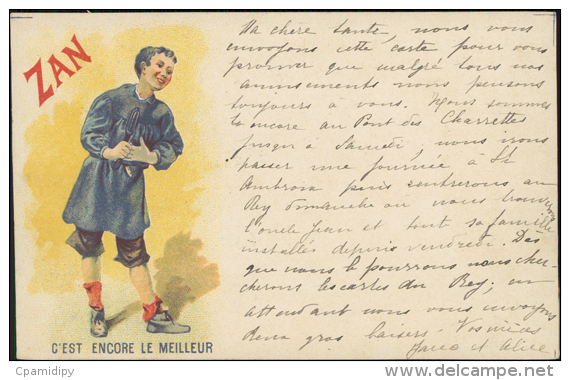 ZAN
C'EST ENCORE LE MEILLEUR
Ma chère tante, nous vous
envoyons cette carte pour vous
prouver que malgré tous nos
amusements nous pensons
toujours à vous. Nous sommes
encore au Pont des Charrettes
jusqu'à Samedi, nous irons
passer une journée à St
Ambroix puis rentrerons au
Rey dimanche où nous trouverons
l'oncle Jean et tout sa famille
installés depuis vendredi. Dès
que nous le pourrons nous cher-
cherons les cartes du Rey; en
attendant nous vous envoyons
deux gros baisers. Vos nièces
et Alice
© Cpamidipy
delcampe.net